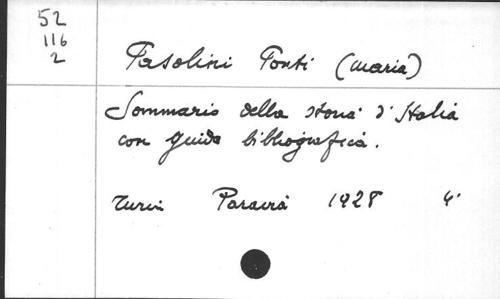 52
116
2
Pasolini Ponti (Maria)
Sommario della storia d'Italia
con guida bibliografica.
Turin Paravia 1928 4°